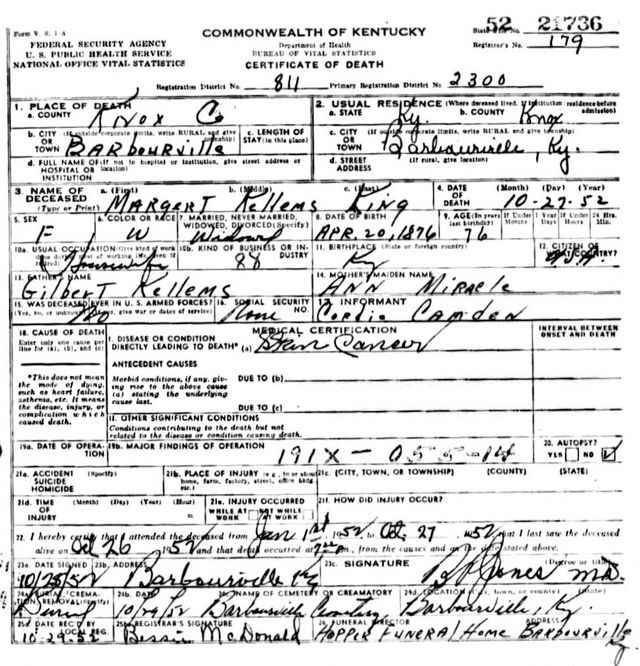 Form V. S. 1-A
COMMONWEALTH OF KENTUCKY
52 21736
FEDERAL SECURITY AGENCY
U. S. PUBLIC HEALTH SERVICE
NATIONAL OFFICE VITAL STATISTICS
Department of Health
BUREAU OF VITAL STATISTICS
CERTIFICATE OF DEATH
Registrar's No. 179
Registration District No. 811 Primary Registration District No. 2300
1. PLACE OF DEATH
a. COUNTY Knox Co
2. USUAL RESIDENCE (Where deceased lived. If institution residence before admission)
a. STATE Ky. b. COUNTY Knox
b. CITY (If outside corporate limits, write RURAL and give OR TOWN BARBOURVILLE
c. LENGTH OF STAY (in this place)
c. CITY (If outside corporate limits, write RURAL and give township) OR TOWN Barbourville, Ky.
d. FULL NAME OF (If not in hospital or institution, give street address or location) HOSPITAL OR INSTITUTION
d. STREET ADDRESS (If rural, give location)
3. NAME OF DECEASED (Type or Print)
a. (First) b. (Middle) c. (Last)
MARGERT Kellems King
4. DATE OF DEATH (Month) (Day) (Year)
10-27-52
5. SEX F
6. COLOR OR RACE W
7. MARRIED, NEVER MARRIED, WIDOWED, DIVORCED (Specify) Widowed
8. DATE OF BIRTH APR. 20, 1876
9. AGE (In years last birthday) 76
If Under 1 Year Months Days
If Under 24 Hrs. Hours Min.
10a. USUAL OCCUPATION (Give kind of work done during most of working life, even if retired) Housewife
10b. KIND OF BUSINESS OR INDUSTRY 88
11. BIRTHPLACE (State or foreign country) Ky
12. CITIZEN OF U.S.A.
13. FATHER'S NAME
Gilbert Kellems
14. MOTHER'S MAIDEN NAME
ANN Miracle
15. WAS DECEASED EVER IN U. S. ARMED FORCES? (Yes, no, or unknown) (If yes, give war or dates of service) No
16. SOCIAL SECURITY NO. None
17. INFORMANT
Cordie Camden
18. CAUSE OF DEATH
Enter only one cause per line for (a), (b), and (c)
MEDICAL CERTIFICATION
INTERVAL BETWEEN ONSET AND DEATH
I. DISEASE OR CONDITION DIRECTLY LEADING TO DEATH* (a) Skin Cancer
*This does not mean the mode of dying, such as heart failure, asthenia, etc. It means the disease, injury, or complication which caused death.
ANTECEDENT CAUSES
Morbid conditions, if any, giving rise to the above cause (a) stating the underlying cause last.
DUE TO (b)
DUE TO (c)
II. OTHER SIGNIFICANT CONDITIONS
Conditions contributing to the death but not related to the disease or condition causing death.
19a. DATE OF OPERATION
19b. MAJOR FINDINGS OF OPERATION
191X - 055 - 14
20. AUTOPSY?
YES NO
21a. ACCIDENT SUICIDE HOMICIDE (Specify)
21b. PLACE OF INJURY (e.g., in or about home, farm, factory, street, office bldg etc)
21c. (CITY, TOWN, OR TOWNSHIP) (COUNTY) (STATE)
21d. TIME OF INJURY (Month) (Day) (Year) (Hour) m
21e. INJURY OCCURRED WHILE AT WORK NOT WHILE AT WORK
21f. HOW DID INJURY OCCUR?
22. I hereby certify that I attended the deceased from Jan 1st 1952 to Oct. 27 1952 that I last saw the deceased
alive on Oct 26 1952 and that death occurred at m., from the causes and on the date stated above.
23a. DATE SIGNED 23b. ADDRESS 23c. SIGNATURE (Degree or title)
10/28/52 Barbourville Ky Jones M.D.
24a. BURIAL, CREMATION, REMOVAL (Specify) 24b. DATE 24c. NAME OF CEMETERY OR CREMATORY 24d. LOCATION (City, town, or county) (State)
10/29/52 Barbourville Cemetery Barbourville, Ky.
25a. DATE REC'D BY LOCAL REG. 25b. REGISTRAR'S SIGNATURE 26. FUNERAL DIRECTOR ADDRESS
10-29-52 Bessie McDonald Hopper Funeral Home Barbourville Ky